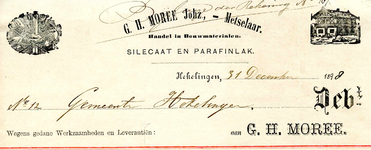 Rekening No
G. H. MOREE Johz., — Metselaar.
Handel in Bouwmaterialen.
SILECAAT EN PARAFINLAK.
Hekelingen, 31 December 1898
No 12 Gemeente Hekelingen. Debt.
Wegens gedane Werkzaamheden en Leverantiën: aan G. H. MOREE.